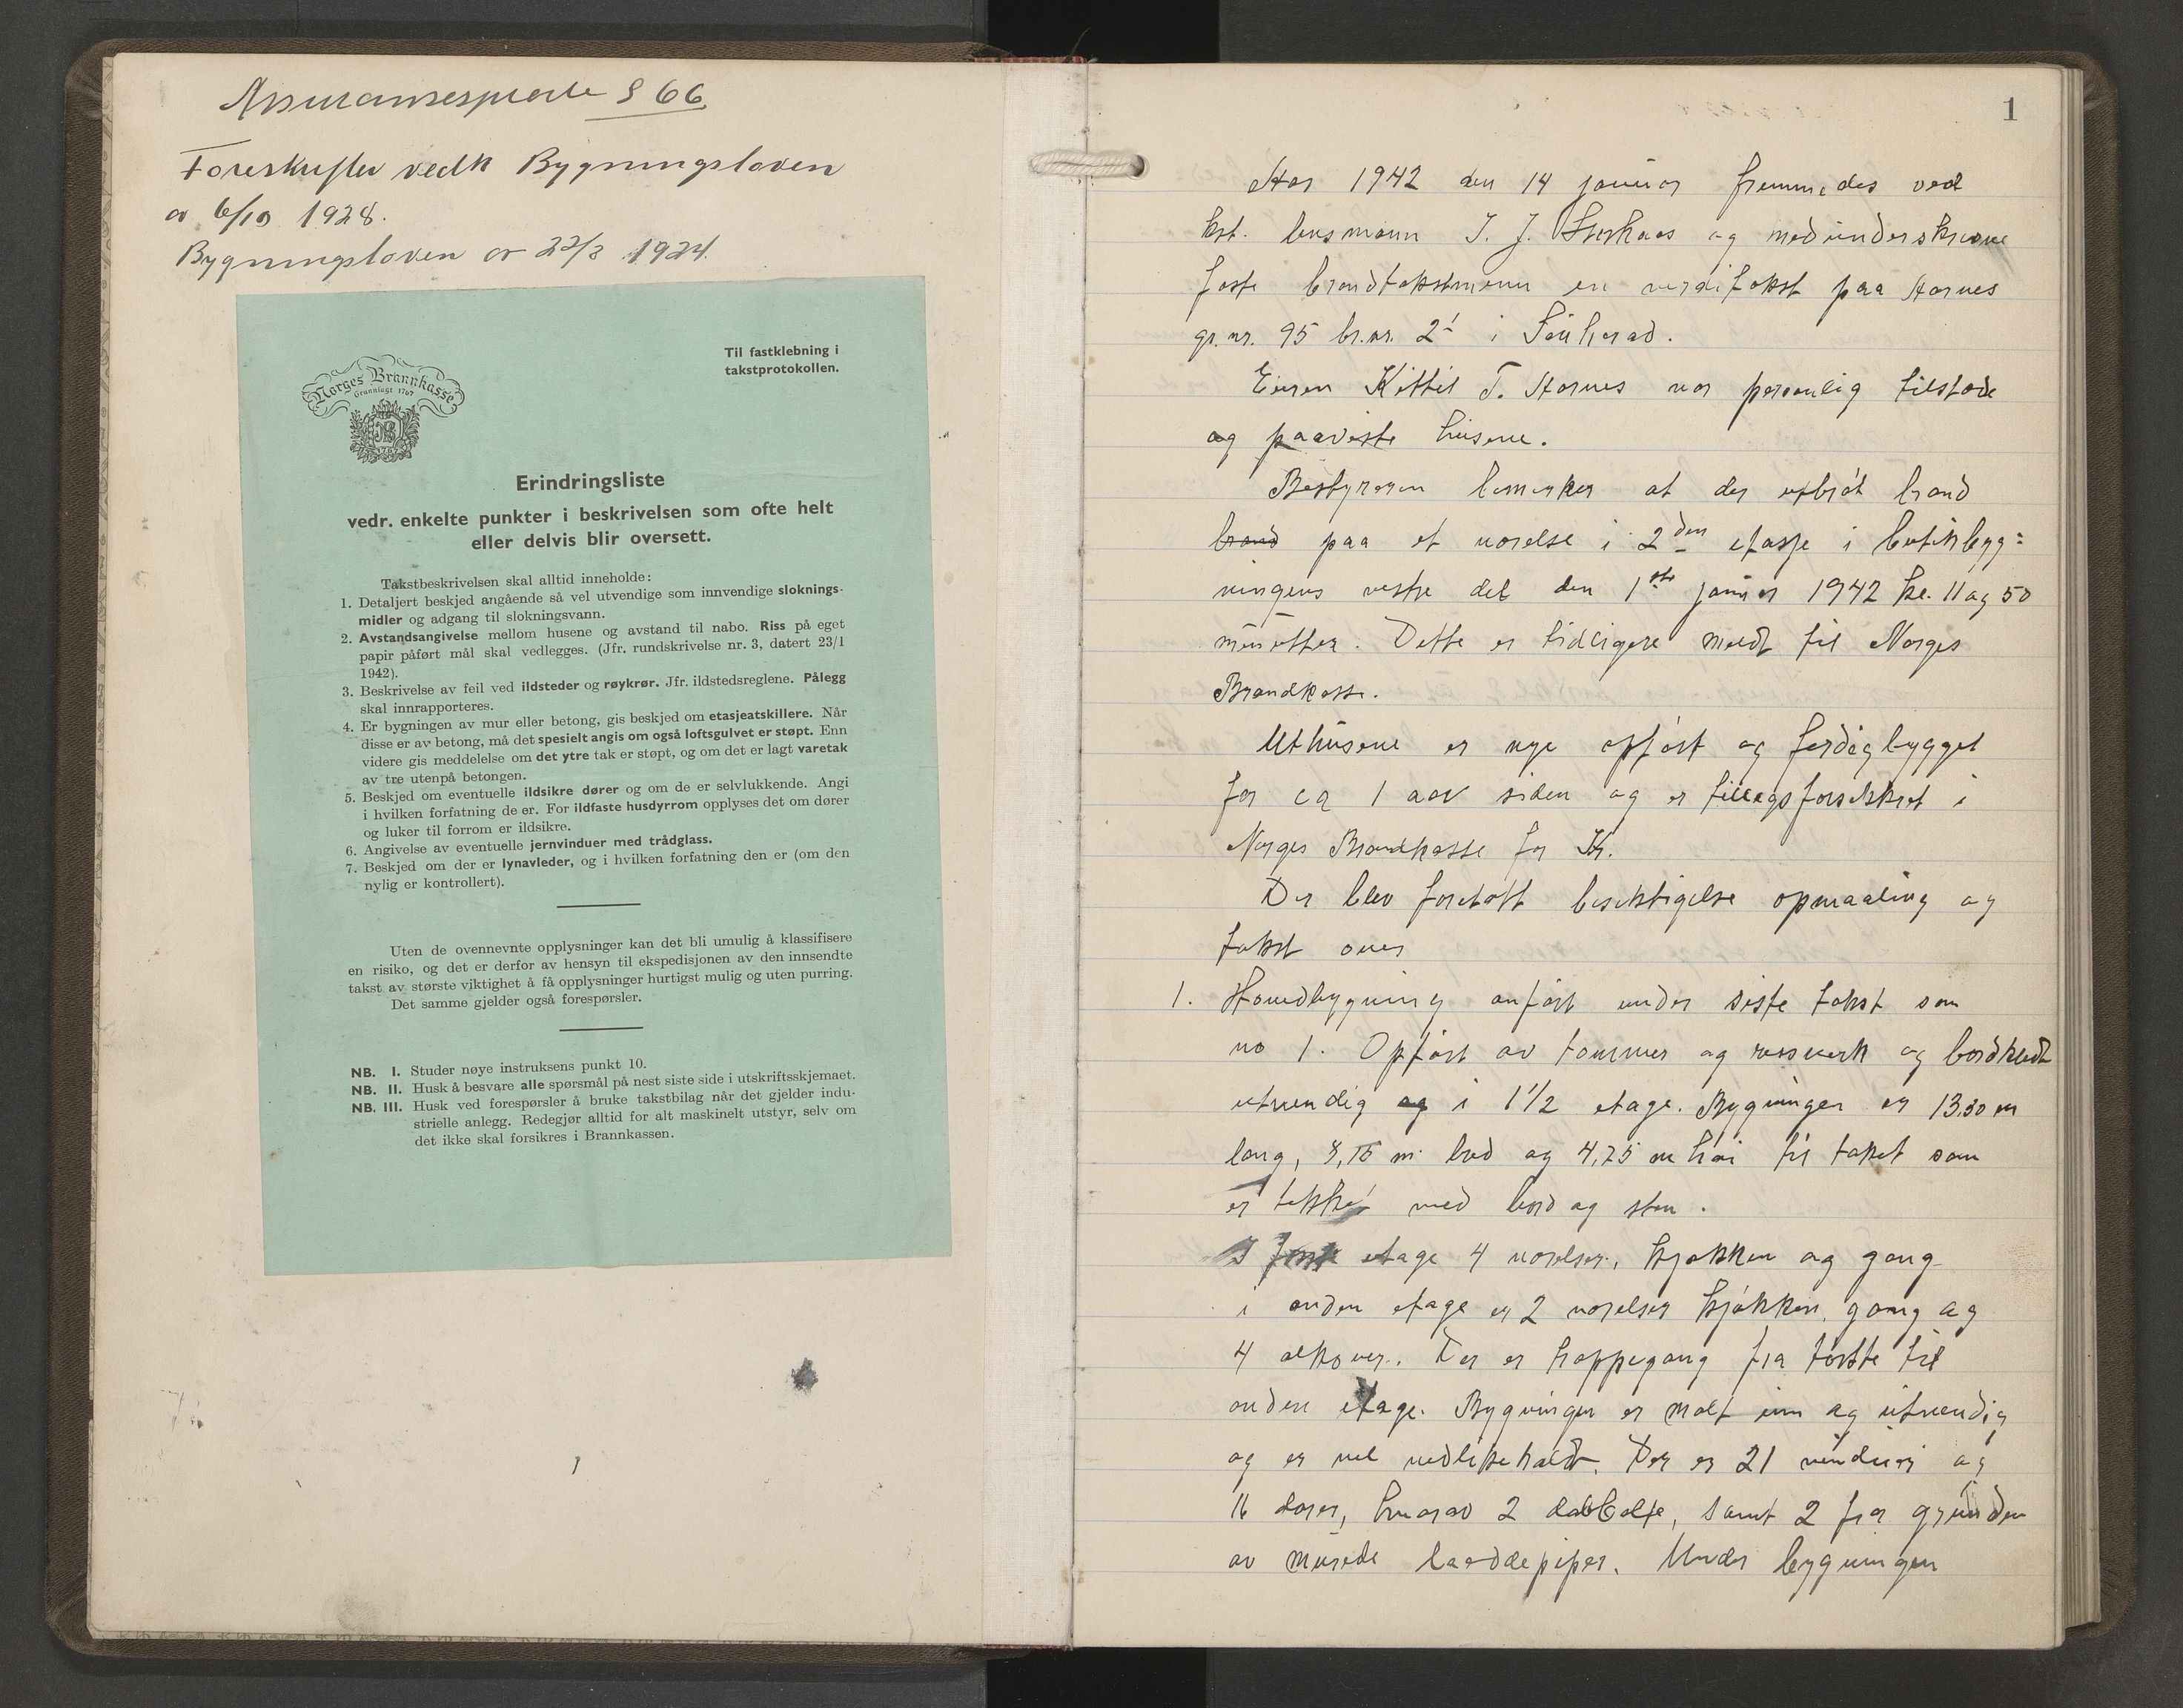 Assuransesperte § 66
Foreskrifter vedk Bygningsloven
av 6/10 1928.
Bygningsloven av 22/2 1924.
Til fastklebning i
takstprotokollen.
Norges Brannkasse
Grunnlagt 1767
Erindringsliste
vedr. enkelte punkter i beskrivelsen som ofte helt
eller delvis blir oversett.
Takstbeskrivelsen skal alltid inneholde:
1. Detaljert beskjed angående så vel utvendige som innvendige sloknings-
midler og adgang til slokningsvann.
2. Avstandsangivelse mellom husene og avstand til nabo. Riss på eget
papir påført mål skal vedlegges. (Jfr. rundskrivelse nr. 3, datert 23/1
1942).
3. Beskrivelse av feil ved ildsteder og røykrør. Jfr. ildstedsreglene. Pålegg
skal innrapporteres.
4. Er bygningen av mur eller betong, gis beskjed om etasjeatskillere. Når
disse er av betong, må det spesielt angis om også loftsgulvet er støpt. Enn
videre gis meddelelse om det ytre tak er støpt, og om det er lagt varetak
av tre utenpå betongen.
5. Beskjed om eventuelle ildsikre dører og om de er selvlukkende. Angi
i hvilken forfatning de er. For ildfaste husdyrrom opplyses det om dører
og luker til forrom er ildsikre.
6. Angivelse av eventuelle jernvinduer med trådglass.
7. Beskjed om der er lynavleder, og i hvilken forfatning den er (om den
nylig er kontrollert).
Uten de ovennevnte opplysninger kan det bli umulig å klassifisere
en risiko, og det er derfor av hensyn til ekspedisjonen av den innsendte
takst av største viktighet å få opplysninger hurtigst mulig og uten purring.
Det samme gjelder også forespørsler.
NB. I. Studer nøye instruksens punkt 10.
NB. II. Husk å besvare alle spørsmål på nest siste side i utskriftsskjemaet.
NB. III. Husk ved forespørsler å bruke takstbilag når det gjelder indu-
strielle anlegg. Redegjør alltid for alt maskinelt utstyr, selv om
det ikke skal forsikres i Brannkassen.
1
Aar 1942 den 14 januar fremmedes ved
kst. lensmann J. J. og medunderskrevne
faste brandtakstmenn en verditakst paa Harnes
gr.nr. 95 br.nr. 2 i Sauherad.
Eieren Kittil T. Harnes var personlig tilstede
og paaviste husene.
Bestyreren bemerker at der utbrøt brand
brand paa et værelse i 2den etasje i butikbyg=
ningens vestre del den 1ste januar 1942 kl. 11 og 50
minutter. Dette er tidligere meldt til Norges
Brandkasse.
Uthusene er nye opført og ferdigbygget
for ca 1 aar siden og er tilleggsforsikkret i
Norges Brandkasse for Kr.
Der blev foretatt besiktigelse opmaaling og
takst over
1. Hovedbygning anført under siste takst som
no 1. Opført av tømmer og reisverk og bordkledt
utvendig og i 1 1/2 etage. Bygningen er 13.30 m
lang, 8,15 m. bred og 4,75 m høi til taket som
er tekket med bord og sten.
I første etage 4 værelser, kjøkken og gang
i anden etage er 2 værelser kjøkken, gang og
4 alkover. Der er trappegang fra første til
anden etage. Bygningen er malt inn og utvendig
og er vel vedlikeholdt. Der er 21 vinduer og
16 dører, hvorav 2 dobbelte, samt 2 fra grunden
av murede laaddepiper. Under bygningen